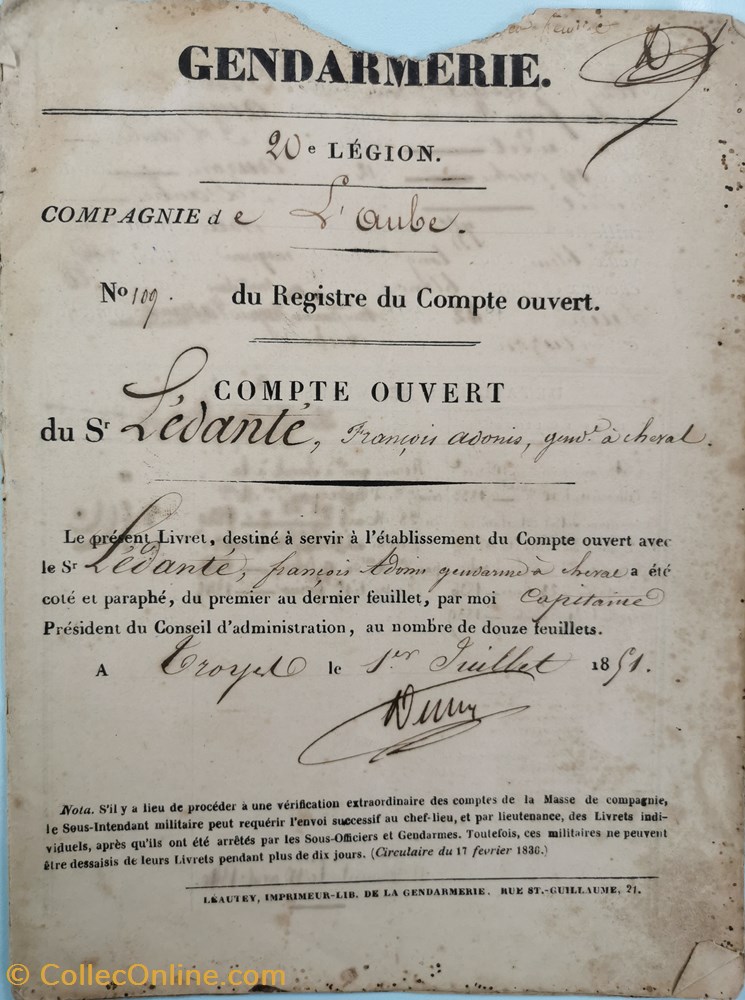 GENDARMERIE.
20e LÉGION.
COMPAGNIE de L'aube.
No 109. du Registre du Compte ouvert.
COMPTE OUVERT
du Sr Lédanté, François adonis, gend.e à cheval.
Le présent Livret, destiné à servir à l'établissement du Compte ouvert avec
le Sr Lédanté, françois Adonis gendarme à cheval a été
coté et paraphé, du premier au dernier feuillet, par moi Capitaine
Président du Conseil d'administration, au nombre de douze feuillets.
A Troyes le 1er Juillet 1851.
Nota. S'il y a lieu de procéder à une vérification extraordinaire des comptes de la Masse de compagnie,
le Sous-Intendant militaire peut requérir l'envoi successif au chef-lieu, et par lieutenance, des Livrets indi-
viduels, après qu'ils ont été arrêtés par les Sous-Officiers et Gendarmes. Toutefois, ces militaires ne peuvent
être dessaisis de leurs Livrets pendant plus de dix jours. (Circulaire du 17 fevrier 1836.)
LÉAUTEY, IMPRIMEUR-LIB. DE LA GENDARMERIE. RUE ST.-GUILLAUME, 21.
© CollecOnline.com